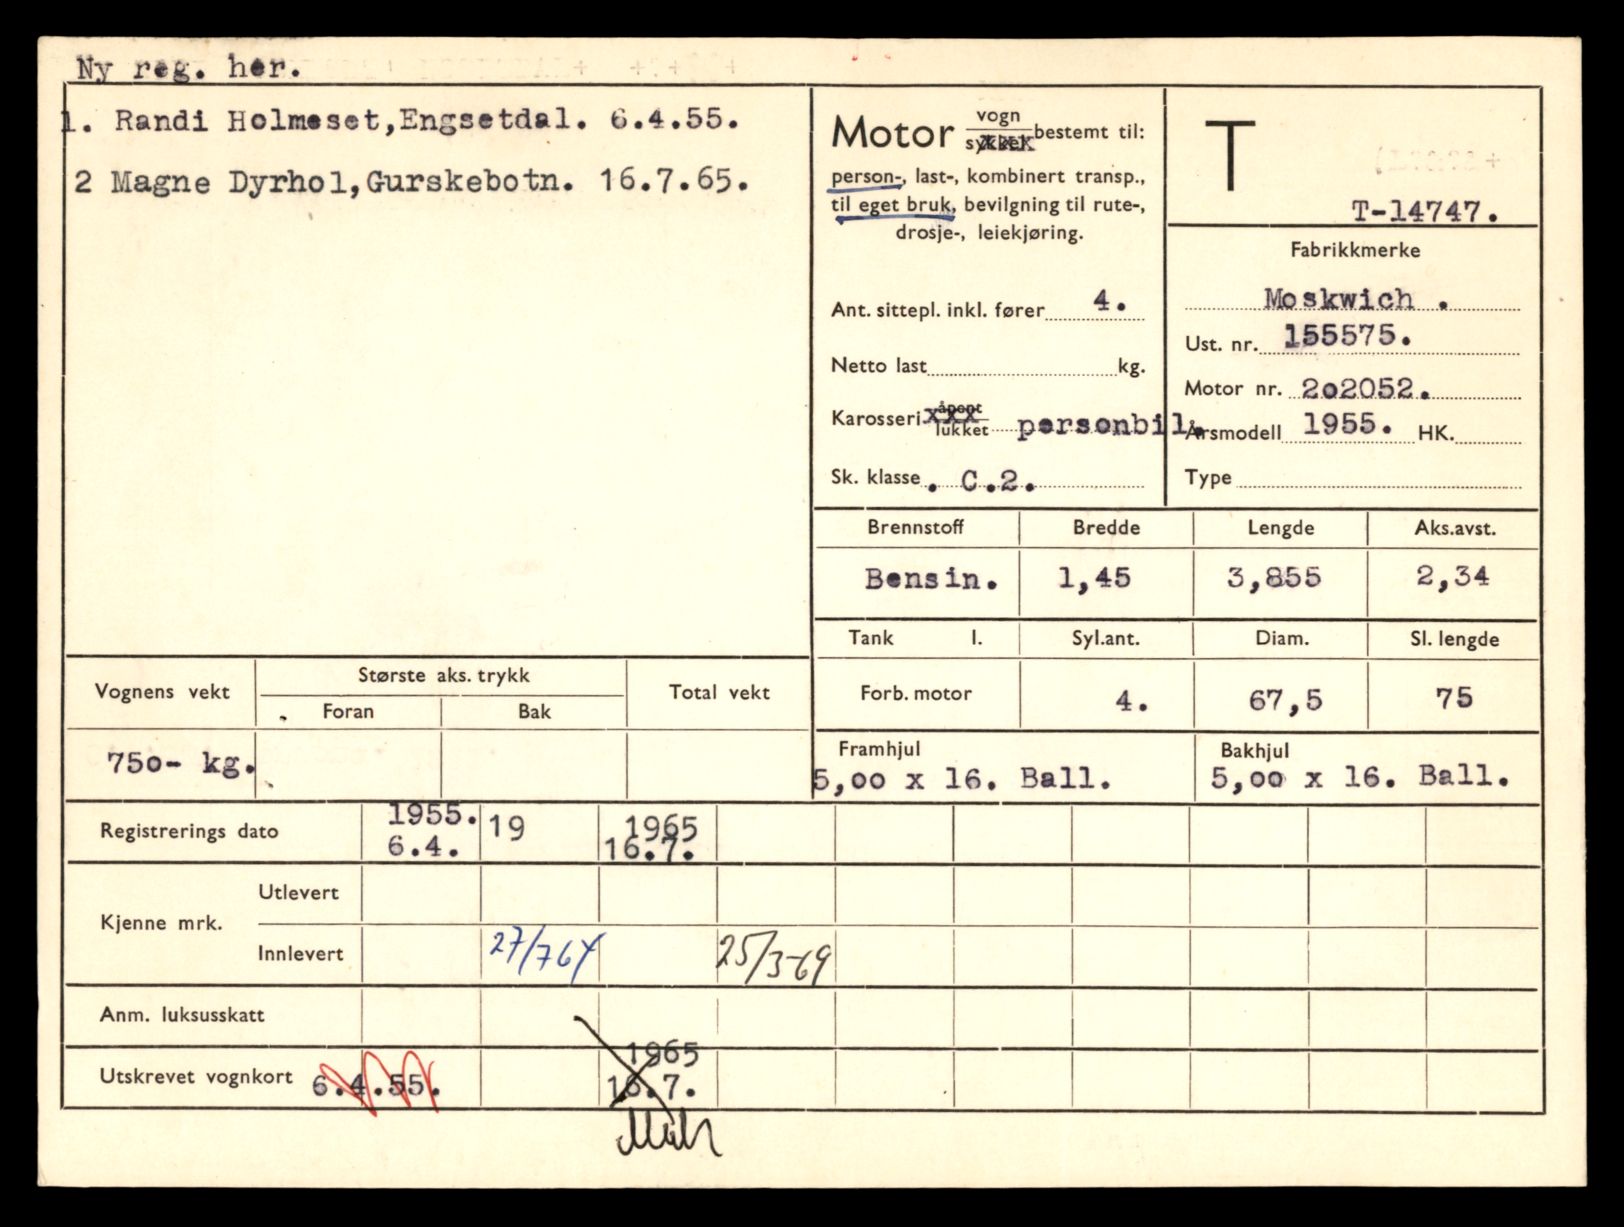 Ny reg. her.
1. Randi Holmeset,Engsetdal. 6.4.55.
2 Magne Dyrhol,Gurskebotn. 16.7.65.
Motor vogn sykkel bestemt til:
person-, last-, kombinert transp.,
til eget bruk, bevilgning til rute-,
drosje-, leiekjøring.
Ant. sittepl. inkl. fører 4.
Netto last kg.
Karosseri åpent lukket personbil.
Sk. klasse . C.2.
T
T-14747.
Fabrikkmerke
Moskwich .
Ust. nr. 155575.
Motor nr. 2o2052.
Årsmodell 1955. HK.
Type
Brennstoff Bredde Lengde Aks.avst.
Bensin. 1,45 3,855 2,34
Tank l. Syl.ant. Diam. Sl. lengde
Forb. motor 4. 67,5 75
Framhjul Bakhjul
5,oo x 16. Ball. 5,oo x 16. Ball.
Vognens vekt Største aks. trykk Total vekt
Foran Bak
75o- kg.
Registrerings dato 1955. 19 1965
6.4. 16.7.
Kjenne mrk. Utlevert
Innlevert 27/7 64 25/3-69
Anm. luksusskatt
1965
Utskrevet vognkort 6.4.55. 16.7.